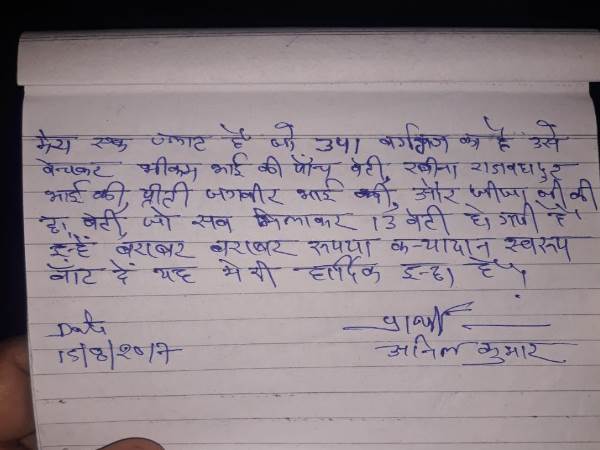 मेरा एक प्लाट है जो 341 वर्गफिट का है उसे
बेचकर भीकम भाई की पाँच बेटी, रवीना राजबहादुर
भाई की, प्रीती जगवीर भाई की, और जीजा जी की
छः बेटी, जो सब मिलाकर 13 बेटी हो गयी है।
इन्हें बराबर बराबर रूपया कन्यादान स्वरूप
बाँट दें यह मेरी हार्दिक इच्छा है।
Date
15/8/2017
प्रार्थी
अनिल कुमार